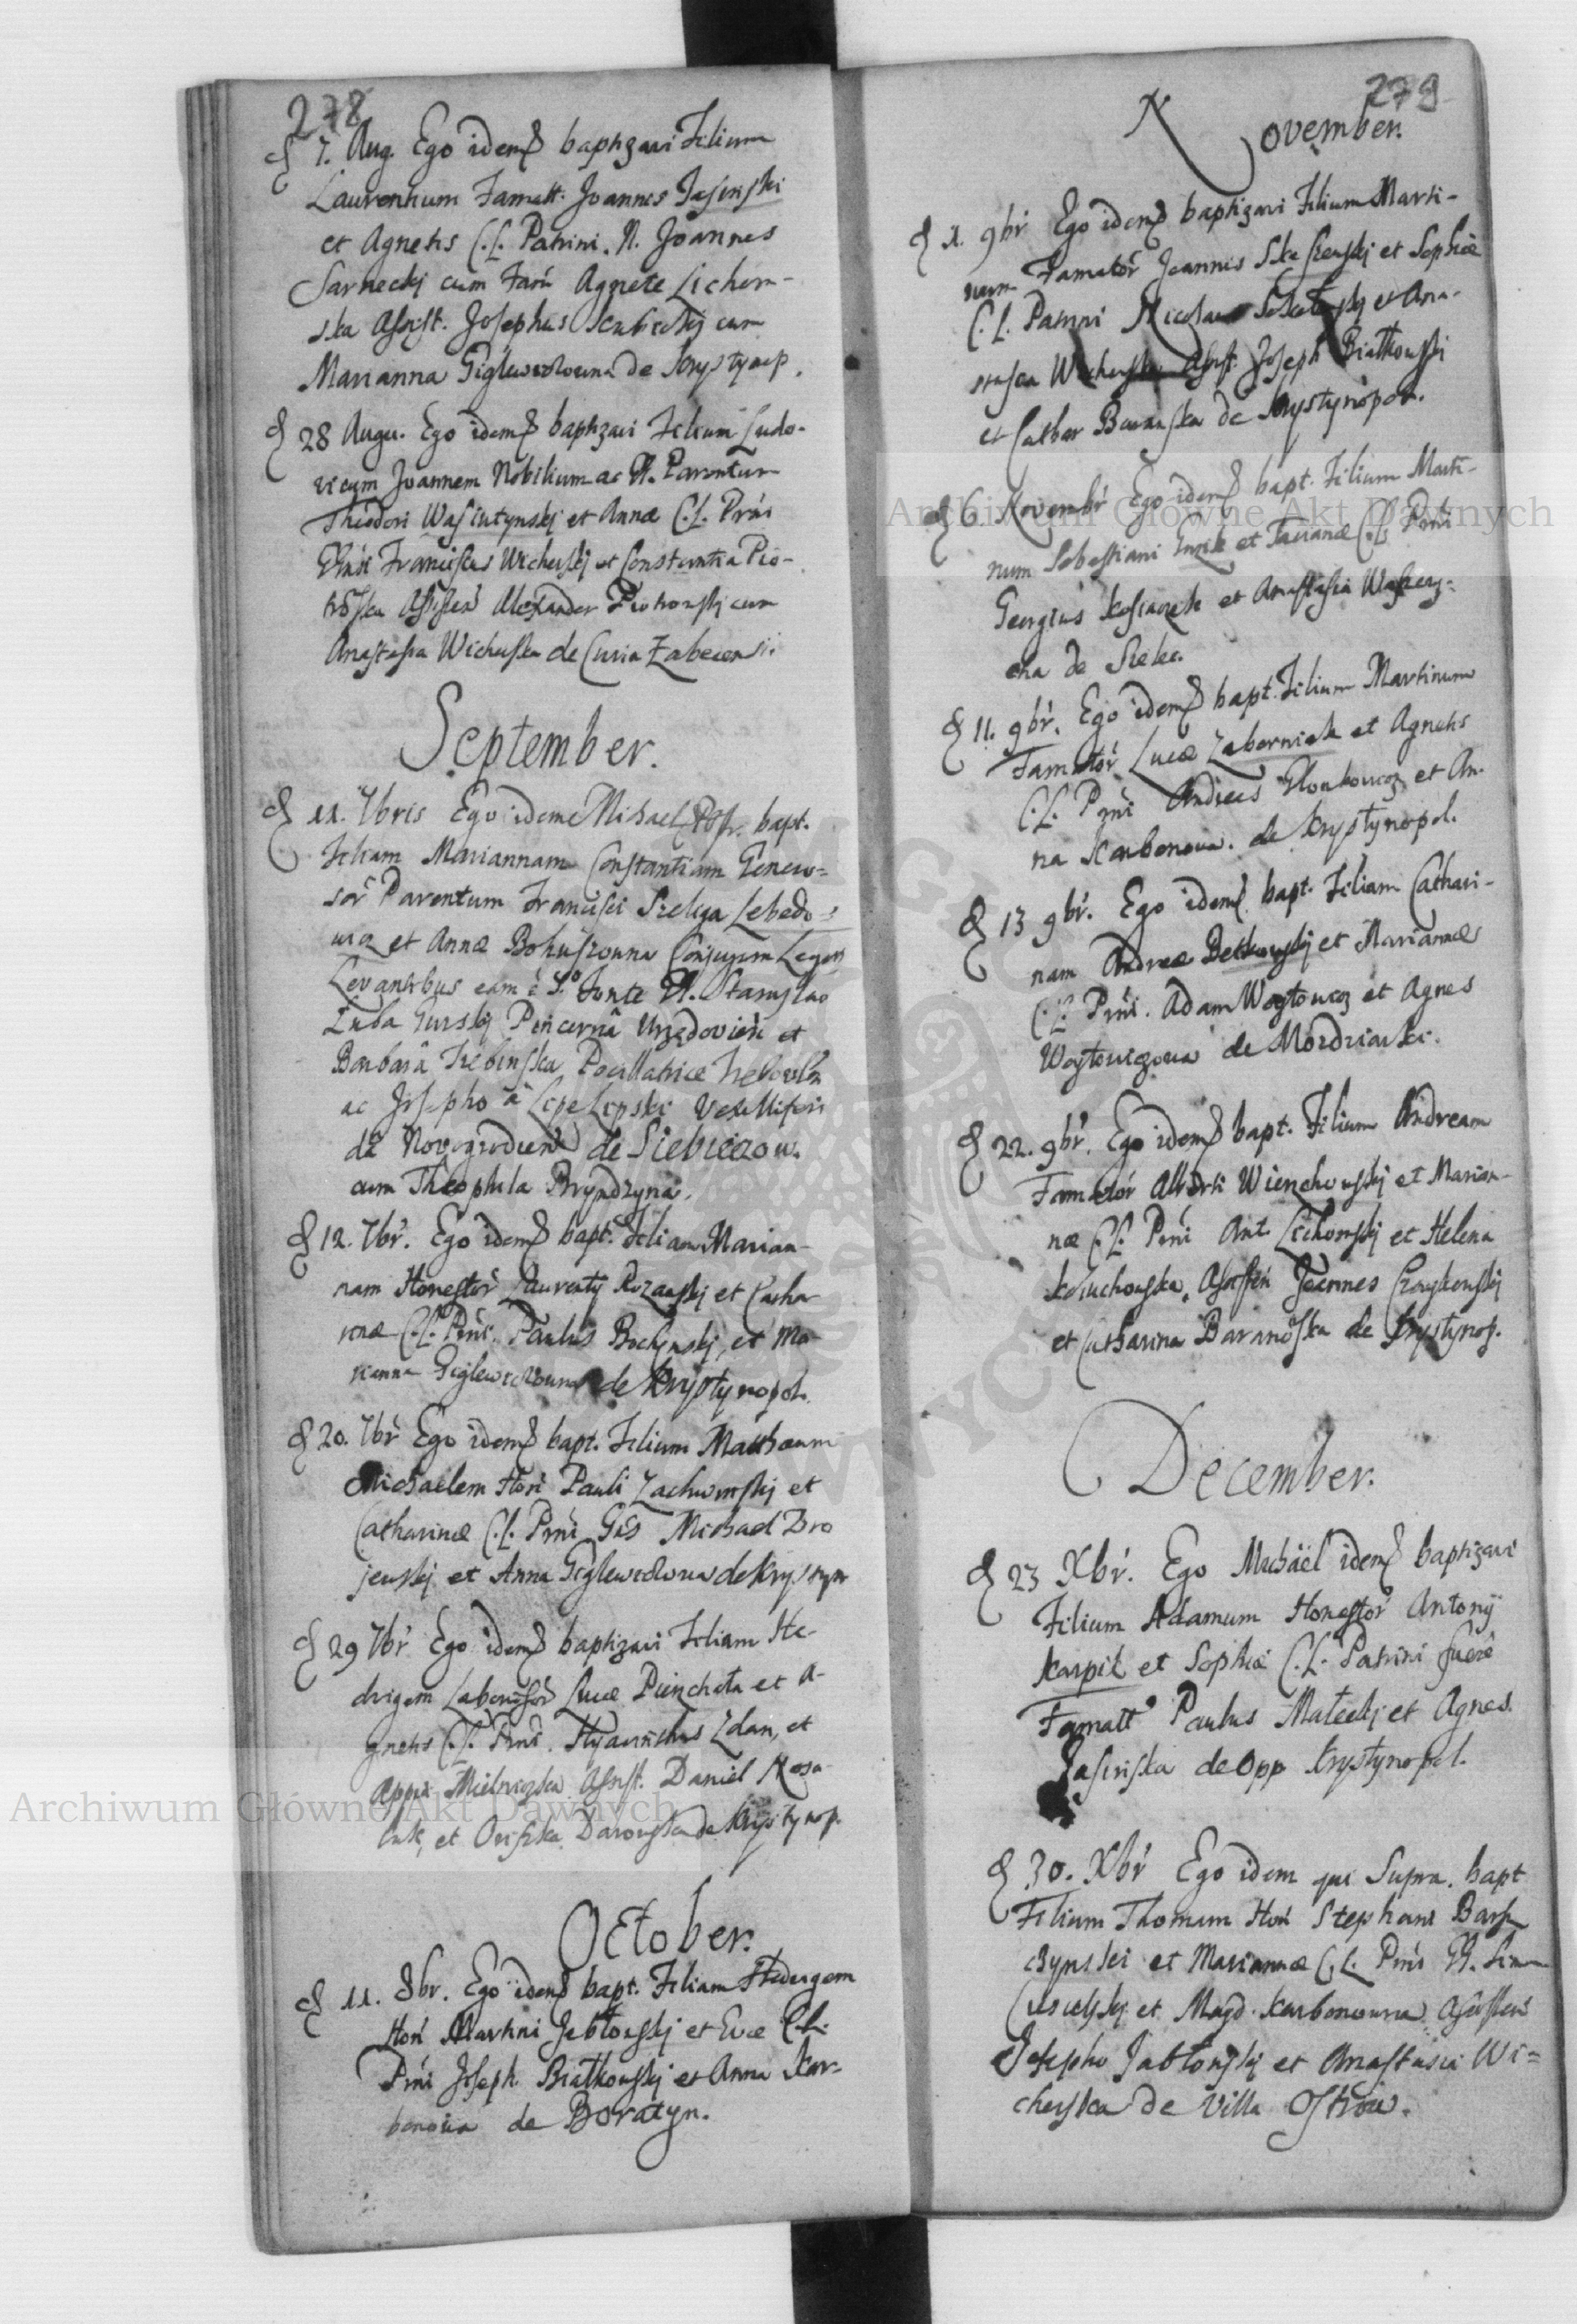 278
7. Aug. Ego idem baptizavi Filium
Laurentium Famatt. Joannes Jasinski
et Agnetis C.L. Patrini. N. Joannes
Sarneckj cum Agnete Lichom-
ska Assist. Josephus cum
Marianna Giglewiczowna de Krystynop.
28 Augu. Ego idem baptizavi Filium Ludo-
vicum Joannem Nobilium ac Parentum
Theodori Wasiutynskj et Annæ C.L. Prni
Franciscus Wicherskj et Constantia Pio-
Alexander Piotrowskj cum
Anastasia Wicherska de Curia Zabecensi.
September.
11. 7bris Ego idem Michael bapt.
Filiam Mariannam Constantiam Genero-
sor Parentum Francisci Szeliga Lebedo-
wicz et Annæ Bohuszowna Conjugum
Levantibus eam è S. Fonte Stanislao
Zuba Gurskj Pincernâ et
Barbarâ Trebinska
ac Josepho à Lipe Lipski Vexilliferi
de Siebieczow.
cum Theophila Bryndzyna.
12. 7br. Ego idem bapt. Filiam Marian-
nam Honestor Laurenty Rozanskj et Catha
rinæ C.L. Prni. Paulus Bochenskj, et Ma-
rianna Giglewiczowna de Krystynopol.
20. 7br Ego idem bapt. Filium Matthæum
Michaelem Hon Pauli Zachwinskj et
Catharinæ C.L. Prni Michael Bro
jewskj et Anna Giglewiczowna de Krystyn
29 7br Ego idem baptizavi Filiam He-
dvigem Laborisor Lucæ Pienchota et A-
gnetis C.L. Prni. Hyacinthus Zdan, et
Mielniczka Assist. Daniel
et Darowska de Krystynop.
October.
11. 8br. Ego idem bapt. Filiam Hedvigem
Hon Martini Jabłonskj et Evæ C.L.
Prni Joseph Białkowskj et Anna Kar-
bonowa de Boratyn.
279
November.
1. 9br Ego idem baptizavi Filium Marti-
num Famator Joannis et Sophiæ
C.L. Patrini et Ana-
stasia Wicherska Assist. Joseph Białkowski
et Cathar de Krystynopol.
6. Novembr Ego idem bapt. Filium Marti-
num Sebastiani et Tacianæ C.L. Prni
Georgius et Anastasia
de Sielec.
11. 9br. Ego idem bapt. Filium Martinum
Famator Lucæ Zaborniak et Agnetis
C.L. Prni Andreas et An-
na Karbonowa. de Krystynopol.
13 9br. Ego idem bapt. Filiam Cathari-
nam Andreæ et Mariannæ
C.L. Prni. Adam Woytowicz et Agnes
Woytowiczowa de Mordziarki.
22. 9br. Ego idem bapt. Filium Andream
Famator Alberti Wienchowskj et Marian-
næ C.L. Prni Ant. Lichowskj et Helena
Joannes Czaykowskj
et Catharina Baranoska de Krystynop.
December.
23 Xbr. Ego Michaël idem baptizavi
Filium Adamum Honestor Antonÿ
Karpik et Sophiæ C.L. Patrini fuere
Famatt Paulus Małeckj et Agnes
Jasinska de opp Krystynopol.
30. Xbr Ego idem qui Supra. bapt
Filium Thomam Hon Stephani Bars
czynski et Mariannæ C.L. Prni
et Magd. Karbonowna
Josepho Jabłonskj et Anastasia Wi=
cherska de Villa Ostrow.
Archiwum Główne Akt Dawnych
Archiwum Główne Akt Dawnych